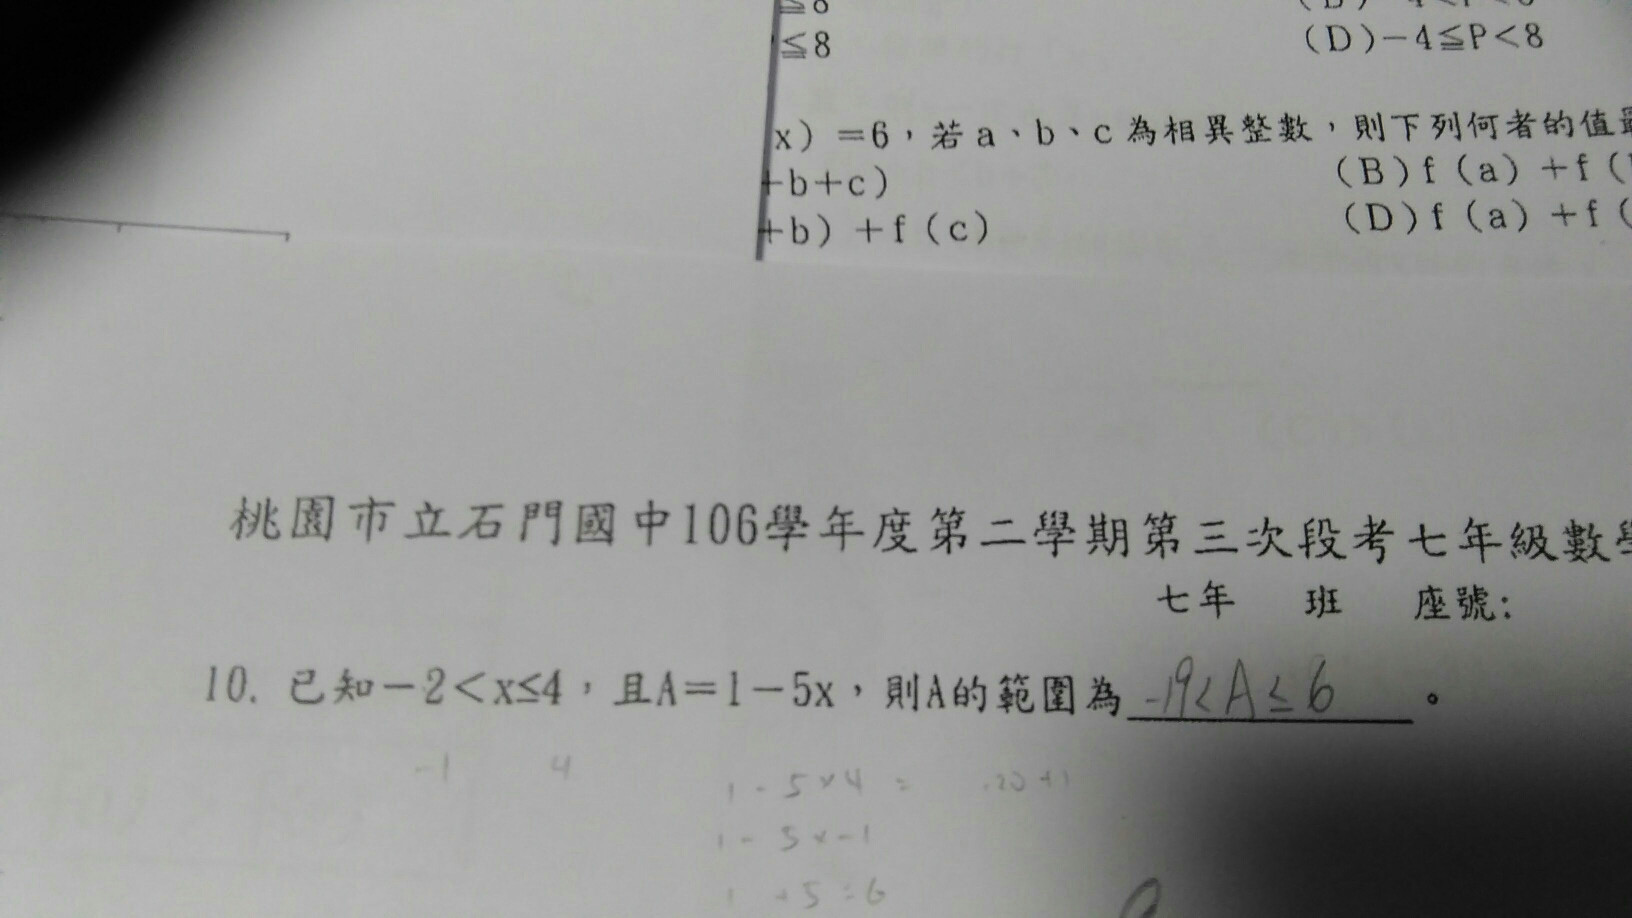 ≦8
≦8
(D)−4≦P<8
x) =6，若a、b、c為相異整數，則下列何者的值最
+b+c)
(B)f(a)+f(
+b)+f(c)
(D)f(a)+f(
桃園市立石門國中106學年度第二學期第三次段考七年級數學
七年 班 座號:
10. 已知−2<x≤4，且A=1−5x，則A的範圍為 -19<A≤6 。
-1 4
1-5×4 = -20+1
1-5×-1
1+5=6